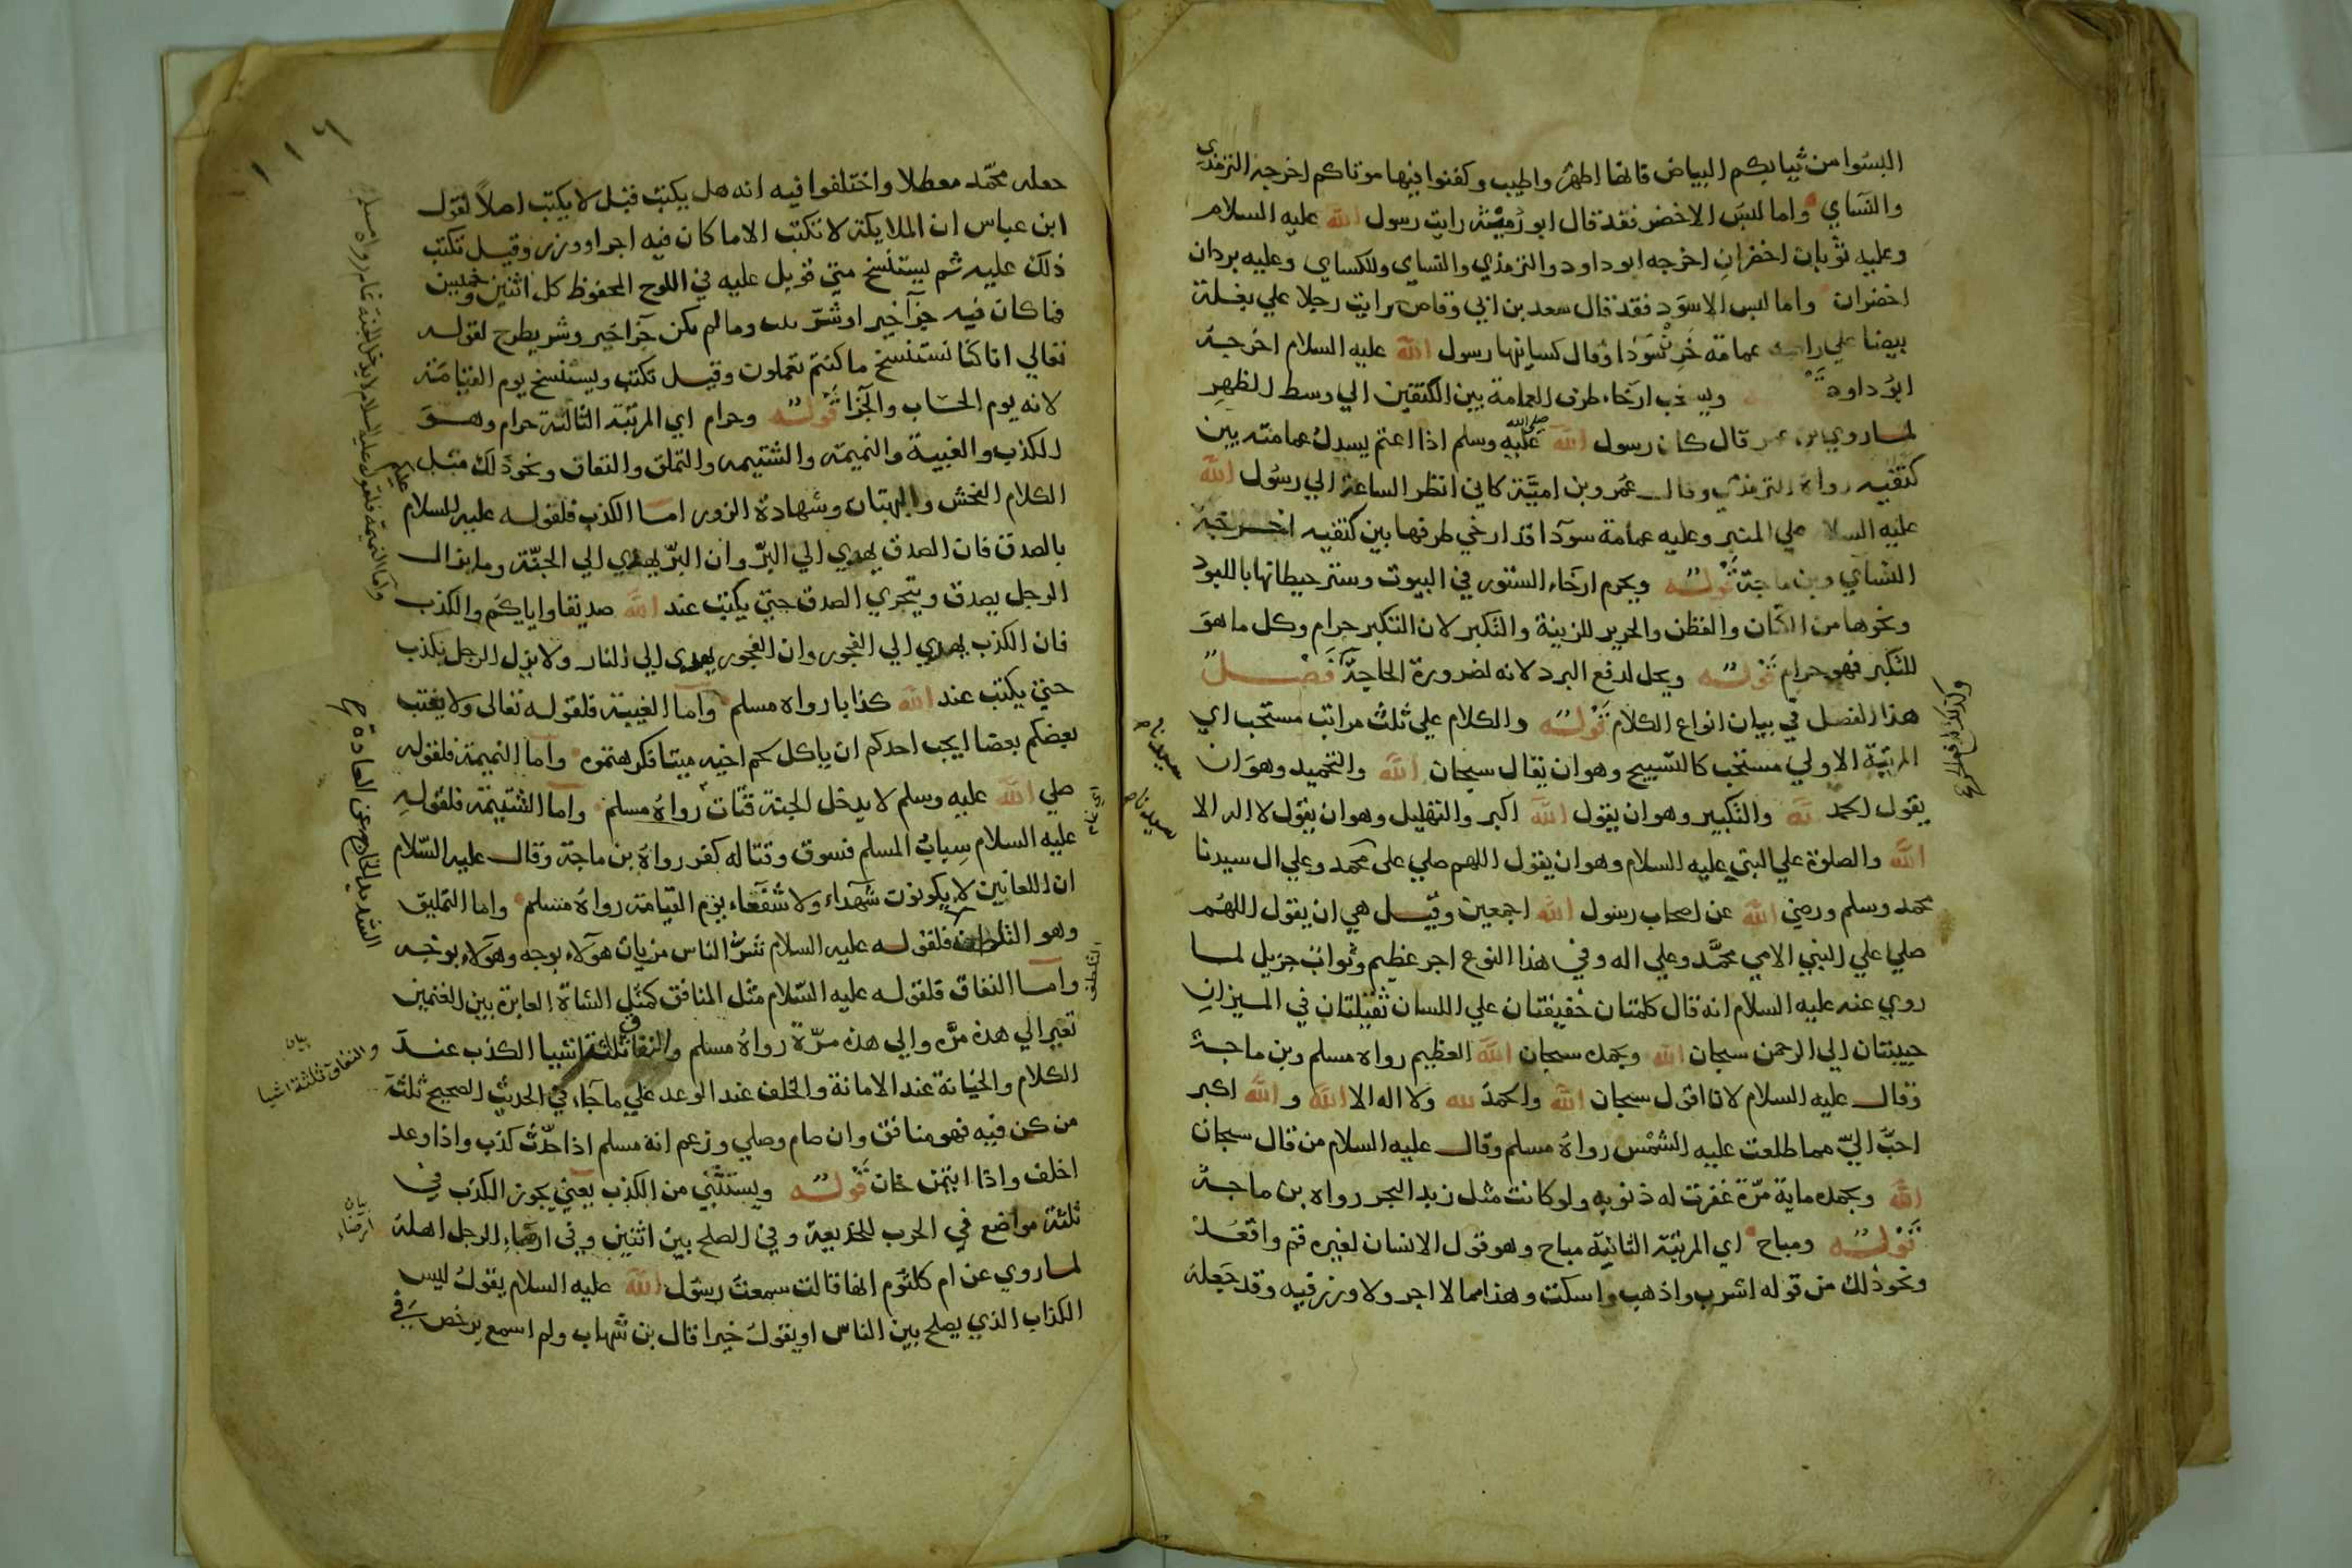 البسوا من ثيابكم البياض فانها اطهر واطيب وكفنوا فيها موتاكم اخرجه الترمذي
والنساي واما لبس الاخضر فقد قال ابو رميثة رايت رسول الله عليه السلام
وعليه ثوبان اخضران اخرجه ابو داود والترمذي والنساي وللكساي وعليه بردان
اخضران واما لبس الاسود فقد قال سعد بن ابي وقاص رايت رجلا علي بغلة
بيضا علي عمامة خز سودا وقال كسانيها رسول الله عليه السلام اخرجه
ابو داود ارخاء طرف العمامة بين الكتفين الي وسط الظهر
لما روي عمر قال كان رسول الله صلي الله عليه وسلم اذا اعتم يسدل عمامته بين
كتفيه رواه الترمذي وقال عمرو بن امية كاني انظر الساعة الي رسول الله
عليه السلام علي المنبر وعليه عمامة سودا قد ارخي طرفها بين كتفيه اخرجه
النساي وبن ماجة قوله ويحرم ارخاء الستور في البيوت وستر حيطانها باللبود
ونحوها من الكتان والقطن والحرير للزينة والتكبر لان التكبر حرام وكل ما هو
للتكبر فهو حرام قوله ويحل لدفع البرد لانه لضرورة الحاجة فصل
هذا الفصل في بيان انواع الكلام قوله والكلام علي ثلث مراتب مستحب اي
المرتبة الاولي مستحب كالتسبيح وهو ان يقال سبحان الله والتحميد وهو ان
يقول الحمد لله والتكبير وهو ان يقول الله اكبر والتهليل وهو ان يقول لا اله الا
الله والصلوة علي النبي عليه السلام وهو ان يقول اللهم صلي على محمد وعلي ال سيدنا
محمد وسلم ورضي الله عن اصحاب رسول الله اجمعين وقيل هي ان يقول اللهم
صلي علي النبي الامي محمد وعلي اله وفي هذا النوع اجر عظيم وثواب جزيل لما
روي عنه عليه السلام انه قال كلمتان خفيفتان علي اللسان ثقيلتان في الميزان
حبيبتان الي الرحمن سبحان الله وبحمده سبحان الله العظيم رواه مسلم وبن ماجة
وقال عليه السلام لان اقول سبحان الله والحمد لله ولا اله الا الله والله اكبر
احب الي مما طلعت عليه الشمس رواه مسلم وقال عليه السلام من قال سبحان
الله وبحمده ماية مرة غفرت له ذنوبه ولو كانت مثل زبد البحر رواه بن ماجة
قوله ومباح اي المرتبة الثانية مباح وهو قول الانسان لغيره قم واقعد
ونحو ذلك من قوله اشرب واذهب واسكت وهذا مما لا اجر ولا وزر فيه وقد جعله
سيدنا
سيدنا
١١٤
جعله محمد معطلا واختلفوا فيه انه هل يكتب فقيل لا يكتب اصلا لقول
ابن عباس ان الملايكة لا تكتب الا ما كان فيه اجر او وزر وقيل تكتب
ذلك عليه ثم يستنسخ متي قوبل عليه في اللوح المحفوظ كل اثنين وخميس
فما كان فيه جزآ خير او شر وما لم يكن جزآ خير وشر يطرح لقوله
تعالي انا كنا نستنسخ ما كنتم تعملون وقيل تكتب ويستنسخ يوم القيامة
لانه يوم الحساب والجزا قوله وحرام اي المرتبة الثالثة حرام وهو
الكذب والغيبة والنميمة والشتيمه والتملق والنفاق ونحو ذلك مثل
الكلام الفحش والبهتان وشهادة الزور اما الكذب فلقوله عليه السلام عليكم
بالصدق فان الصدق يهدي الي البر وان البر يهدي الي الجنة وما يزال
الرجل يصدق ويتحري الصدق حتي يكتب عند الله صديقا واياكم والكذب
فان الكذب يهدي الي الفجور وان الفجور يهدي الي النار ولا يزل الرجل يكذب
حتي يكتب عند الله كذابا رواه مسلم واما الغيبة فلقوله تعالى ولا يغتب
بعضكم بعضا ايحب احدكم ان ياكل لحم اخيه ميتا فكرهتموه واما النميمة فلقوله
صلي الله عليه وسلم لا يدخل الجنة قتات رواه مسلم واما الشتيمة فلقوله
عليه السلام سباب المسلم فسوق وقتاله كفر رواه بن ماجة وقال عليه السلام
ان اللعانين لا يكونون شهداء ولا شفعاء يوم القيامة رواه مسلم واما التمليق
وهو فلقوله عليه السلام شر الناس من ياتي هولاء بوجه وهولاء بوجه
واما النفاق فلقوله عليه السلام مثل المنافق كمثل الشاة العايرة بين الغنمين
تعير الي هذه مرة والي هذه مرة رواه مسلم والنفاق ثلثة اشيا الكذب عند
الكلام والخيانة عند الامانة والخلف عند الوعد علي ما جاء في الحديث الصحيح ثلثة
من كن فيه فهو منافق وان صام وصلي وزعم انه مسلم اذا حدث كذب واذا وعد
اخلف واذا ايتمن خان قوله ويستثني من الكذب يعني يجوز الكذب في
ثلثة مواضع في الحرب للخديعة وفي الصلح بين اثنين وفي ارضاء الرجل اهله
لما روي عن ام كلثوم انها قالت سمعت رسول الله عليه السلام يقول ليس
الكذاب الذي يصلح بين الناس او يقول خيرا قال بن شهاب ولم اسمع يرخص في
واما النميمة فلقوله عليه السلام لا يدخل الجنة نمام رواه مسلم
بيان
والنفاق ثلثة اشيا
بيان
ارضاء